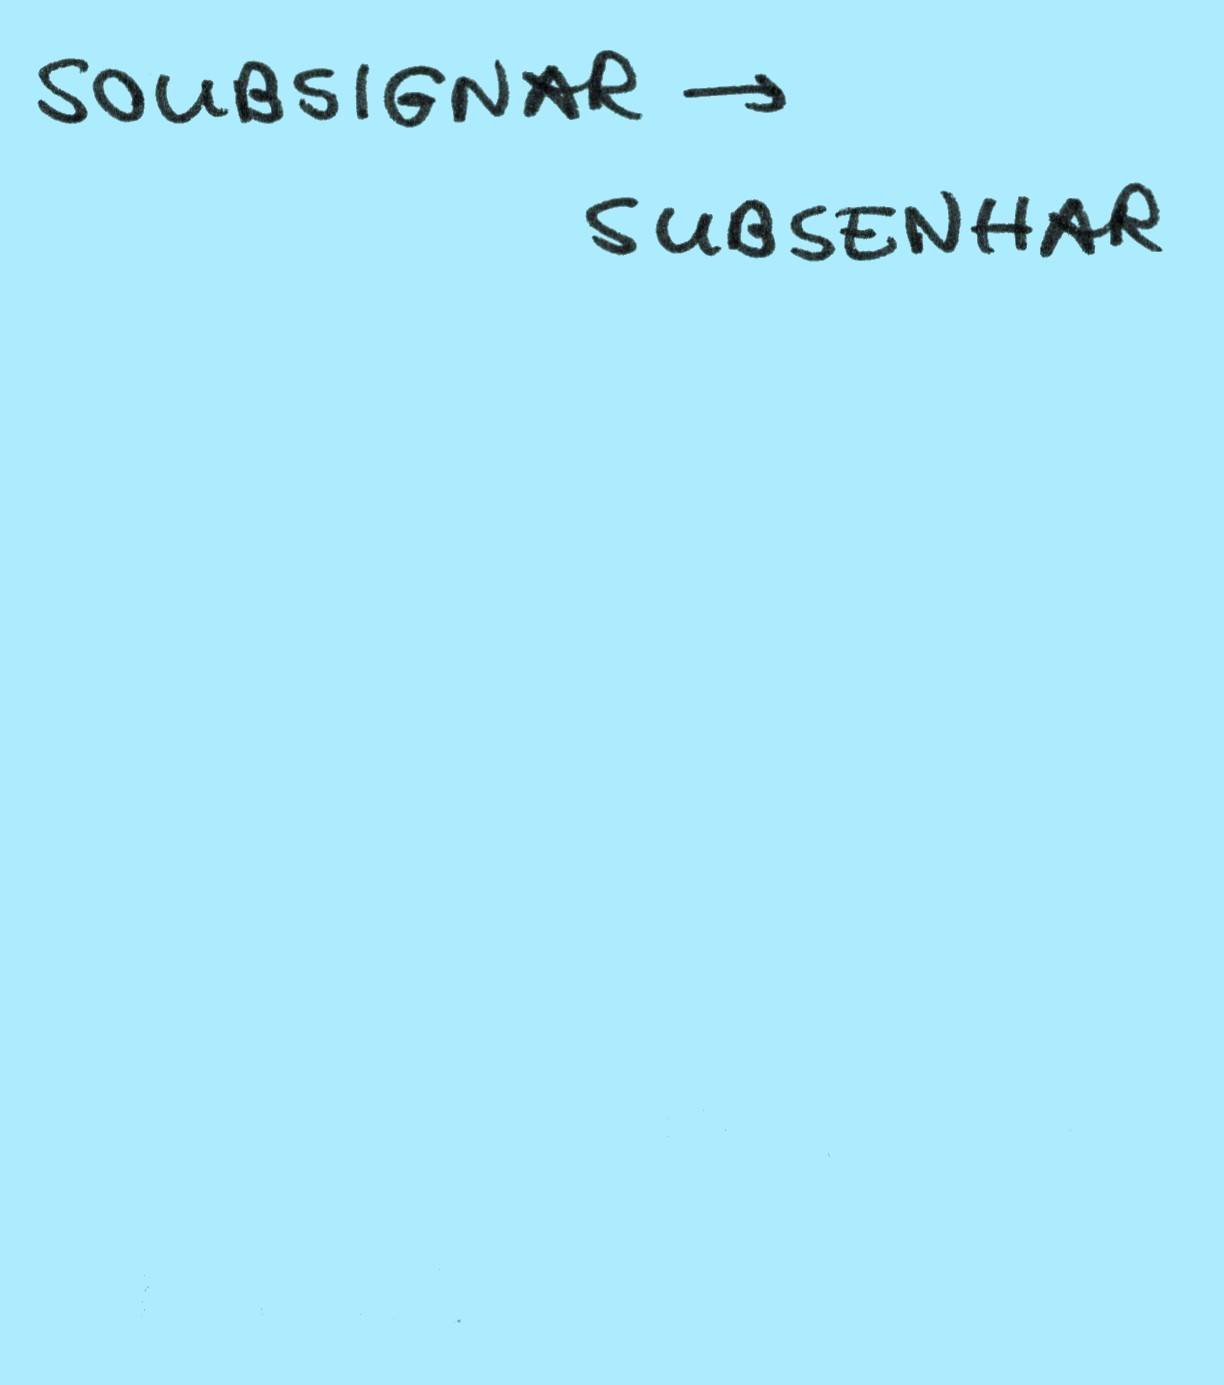 SOUBSIGNAR →
SUBSENHAR